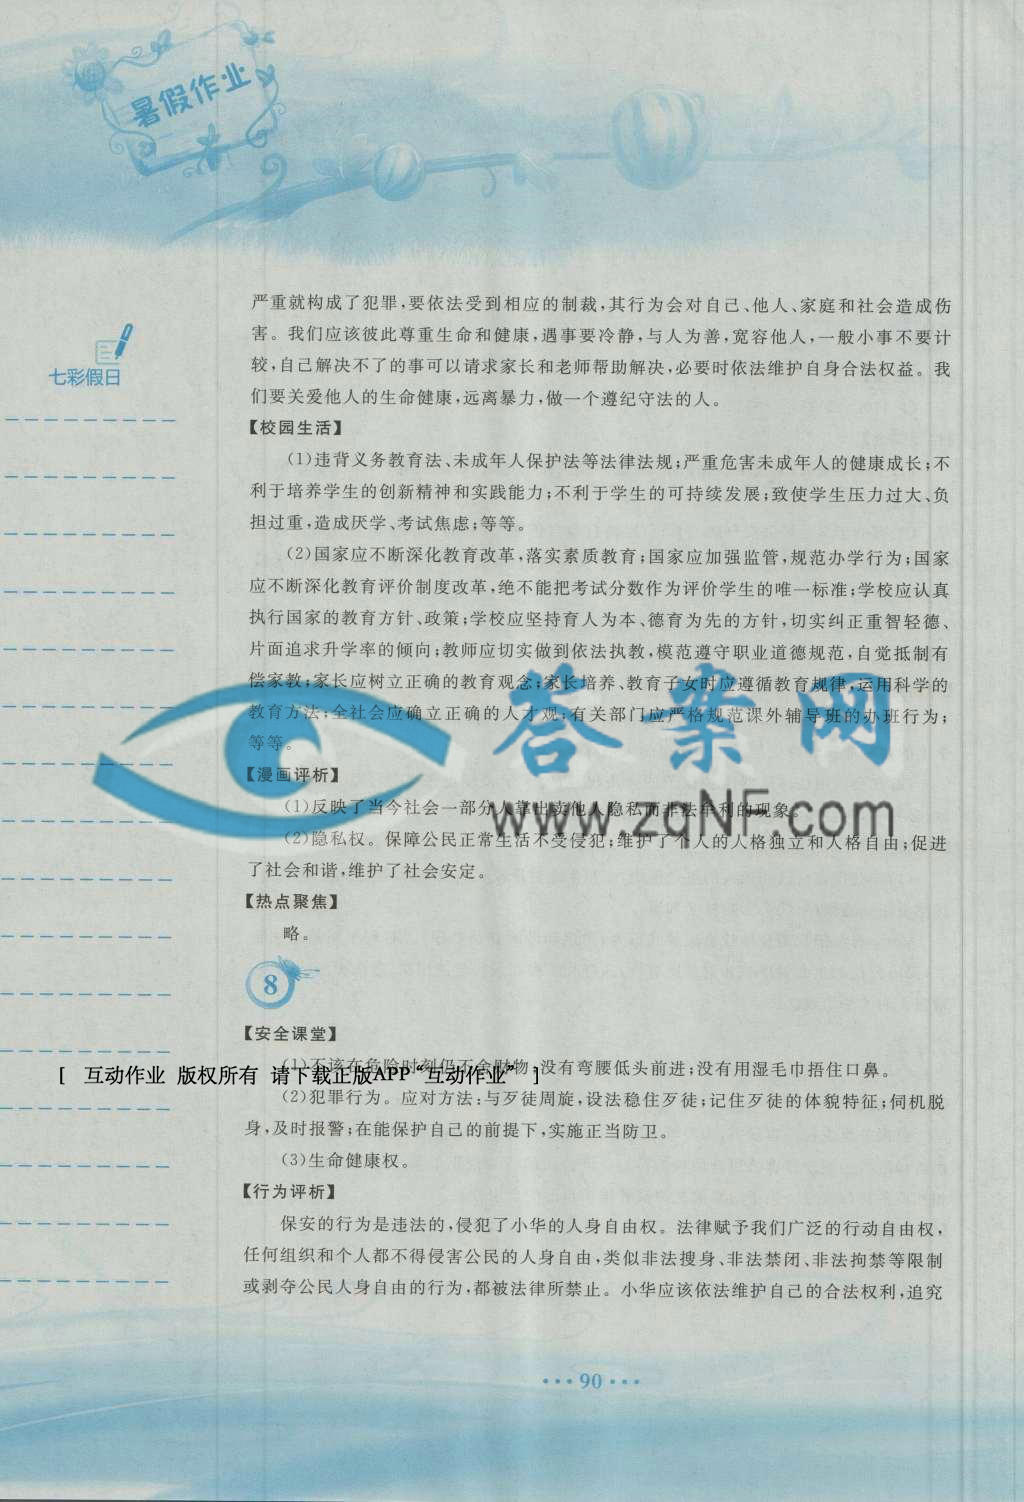 暑假作业
严重就构成了犯罪,要依法受到相应的制裁,其行为会对自己、他人、家庭和社会造成伤
害。我们应该彼此尊重生命和健康,遇事要冷静,与人为善,宽容他人,一般小事不要计
较,自己解决不了的事可以请求家长和老师帮助解决,必要时依法维护自身合法权益。我
们要关爱他人的生命健康,远离暴力,做一个遵纪守法的人。
七彩假日
【校园生活】
(1)违背义务教育法、未成年人保护法等法律法规;严重危害未成年人的健康成长;不
利于培养学生的创新精神和实践能力;不利于学生的可持续发展;致使学生压力过大、负
担过重,造成厌学、考试焦虑;等等。
(2)国家应不断深化教育改革,落实素质教育;国家应加强监管,规范办学行为;国家
应不断深化教育评价制度改革,绝不能把考试分数作为评价学生的唯一标准;学校应认真
执行国家的教育方针、政策;学校应坚持育人为本、德育为先的方针,切实纠正重智轻德、
片面追求升学率的倾向;教师应切实做到依法执教,模范遵守职业道德规范,自觉抵制有
偿家教;家长应树立正确的教育观念;家长培养、教育子女时应遵循教育规律,运用科学的
教育方法;全社会应确立正确的人才观;有关部门应严格规范课外辅导班的办班行为;
等等。
答案网
www.zqNF.com
【漫画评析】
(1)反映了当今社会一部分人靠出卖他人隐私而非法牟利的现象。
(2)隐私权。保障公民正常生活不受侵犯;维护了个人的人格独立和人格自由;促进
了社会和谐,维护了社会安定。
【热点聚焦】
略。
8
【安全课堂】
(1)不该在危险时刻仍不舍财物;没有弯腰低头前进;没有用湿毛巾捂住口鼻。
[ 互动作业 版权所有 请下载正版APP“互动作业” ]
(2)犯罪行为。应对方法:与歹徒周旋,设法稳住歹徒;记住歹徒的体貌特征;伺机脱
身,及时报警;在能保护自己的前提下,实施正当防卫。
(3)生命健康权。
【行为评析】
保安的行为是违法的,侵犯了小华的人身自由权。法律赋予我们广泛的行动自由权,
任何组织和个人都不得侵害公民的人身自由,类似非法搜身、非法禁闭、非法拘禁等限制
或剥夺公民人身自由的行为,都被法律所禁止。小华应该依法维护自己的合法权利,追究
90